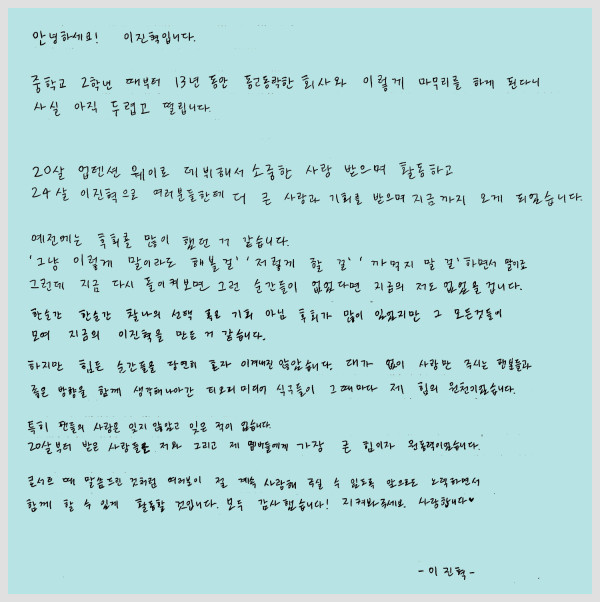 안녕하세요! 이진혁입니다.
중학교 2학년 때부터 13년 동안 동고동락한 회사와 이렇게 마무리를 하게 된다니
사실 아직 두렵고 떨립니다.
20살 업텐션 웨이로 데뷔해서 소중한 사랑 받으며 활동하고
24살 이진혁으로 여러분들한테 더 큰 사랑과 기회를 받으며 지금까지 오게 되었습니다.
예전에는 후회를 많이 했던 거 같습니다.
'그냥 이렇게 말이라도 해볼걸' '저렇게 할 걸' '까먹지 말 걸' 하면서 말이죠
그런데 지금 다시 돌이켜보면 그런 순간들이 없었다면 지금의 저도 없었을 겁니다.
한순간 한순간 찰나의 선택 혹은 기회 아님 후회가 많이 있었지만 그 모든것들이
모여 지금의 이진혁을 만든 거 같습니다.
하지만 힘든 순간들을 당연히 혼자 이겨내진 않았습니다. 대가 없이 사랑만 주시는 팬분들과
좋은 방향을 함께 생각해나아간 티오피미디어 식구들이 그때마다 제 힘의 원천이었습니다.
특히 팬들의 사랑은 잊지 않았고 잊은 적이 없습니다.
20살부터 받은 사랑들은 저와 그리고 제 멤버들에게 가장 큰 힘이자 원동력이었습니다.
콘서트 때 말씀드린 것처럼 여러분이 절 계속 사랑해 주실 수 있도록 앞으로도 노력하면서
함께 할 수 있게 활동할 것입니다. 모두 감사했습니다! 지켜봐주세요. 사랑합니다♥
-이진혁-